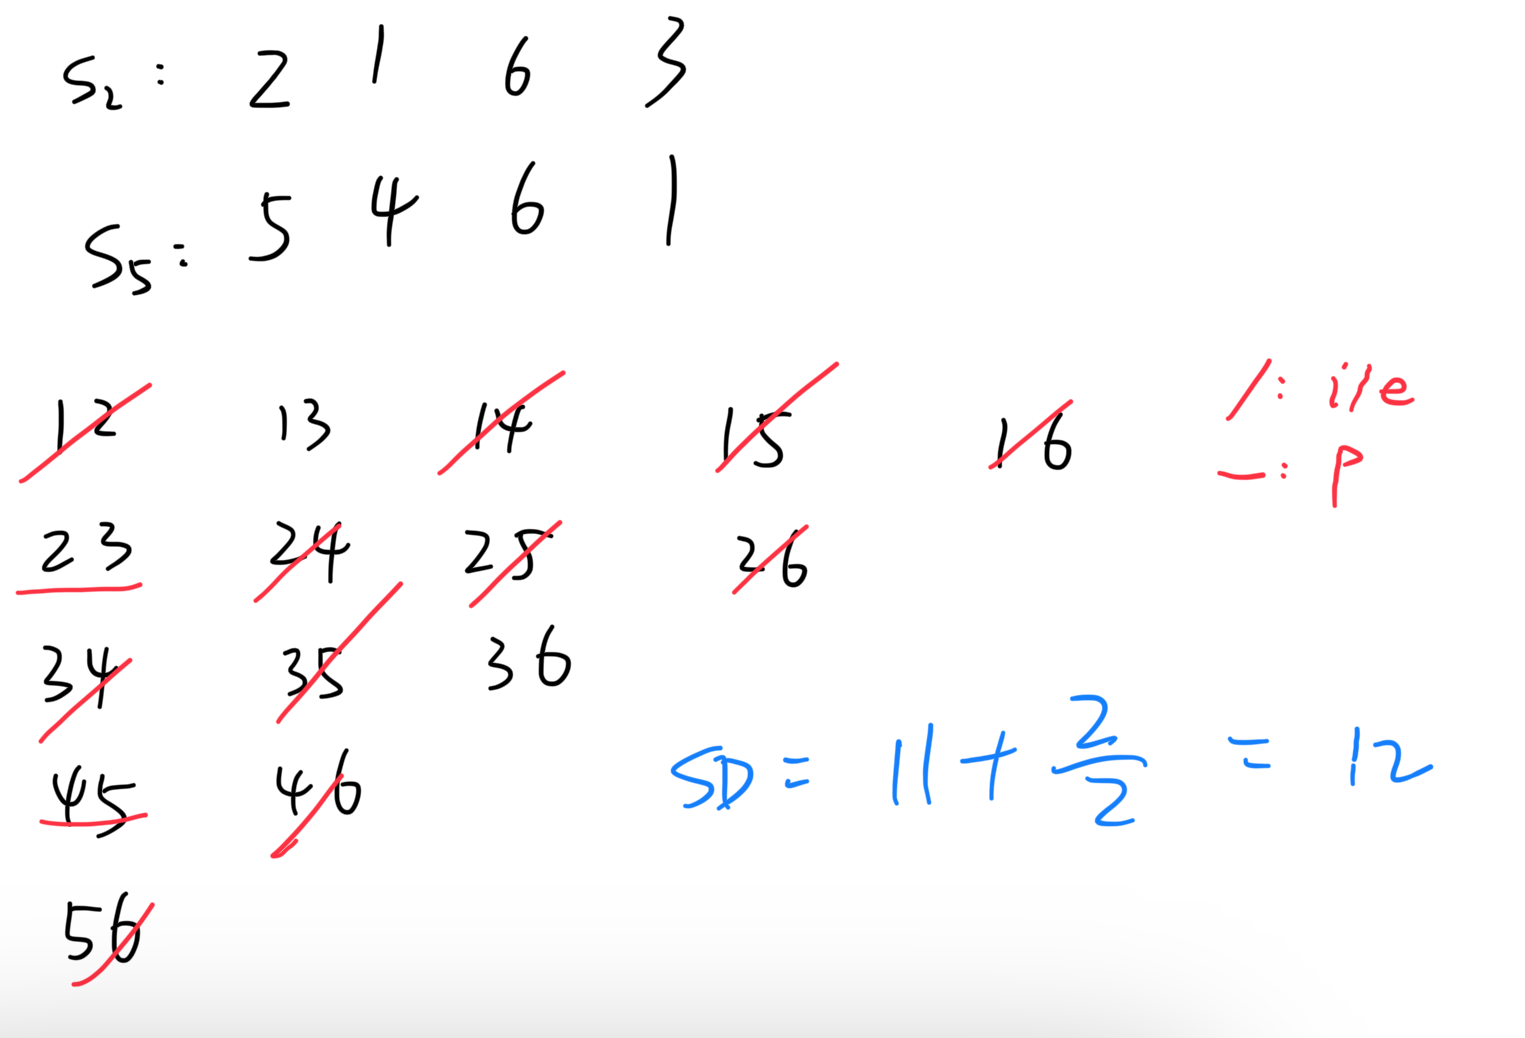 S₂: 2 1 6 3
S₅: 5 4 6 1
12 13 14 15 16 /: i/e
23 24 25 26 —: P
34 35 36
45 46 SD = 11 + 2/2 = 12
56